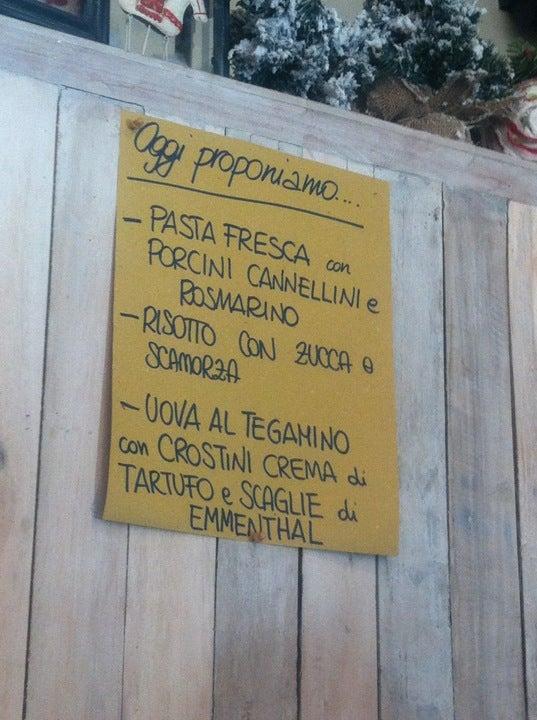 Oggi proponiamo....
- PASTA FRESCA con
PORCINI CANNELLINI e
ROSMARINO
- RISOTTO CON ZUCCA e
SCAMORZA
- UOVA AL TEGAMINO
con CROSTINI CREMA di
TARTUFO e SCAGLIE di
EMMENTHAL